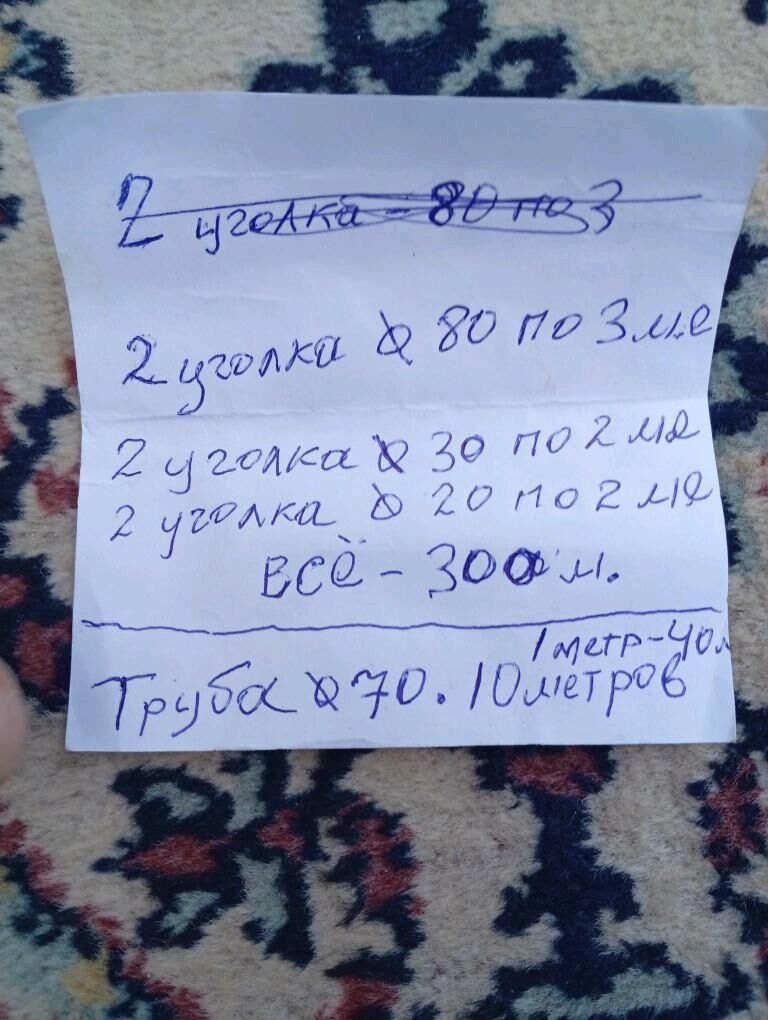 2 уголка - 80 по 3
2 уголка ⌀ 80 по 3 ме
2 уголка ⌀ 30 по 2 ме
2 уголка ⌀ 20 по 2 ме
всё - 300 м.
1 метр - 40 м
Труба ⌀ 70. 10 метров